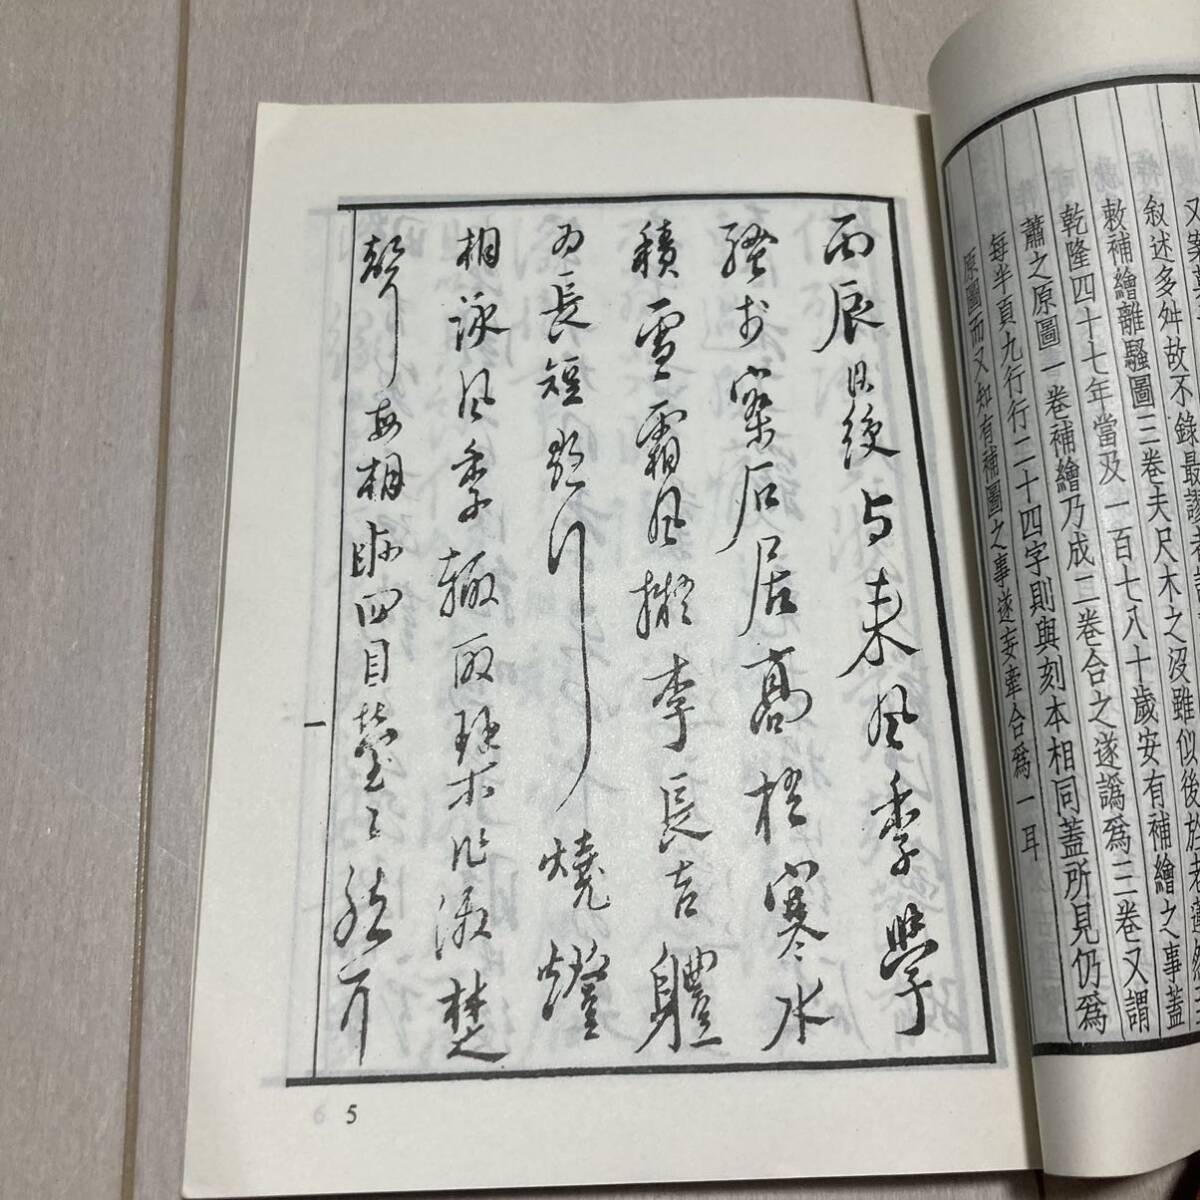 又案
叙述多舛故不錄最誤者
敕補繪離騷圖三卷夫尺木之沒雖似後於老蓮然至
乾隆四十七年當及一百七八十歲安有補繪之事蓋
蕭之原圖一卷補繪乃成二卷合之遂譌爲三卷又謂
每半頁九行行二十四字則與刻本相同蓋所見仍爲
原圖而又知有補圖之事遂妄牽合爲一耳
丙辰洪綬与来風季學
騷於石居高梧寒水
積雪霜風擬李長吉體
為長短歌行燒燈
相詠風季輒取琴作激楚
聲每相眎四目瑩瑩然耳
一
5